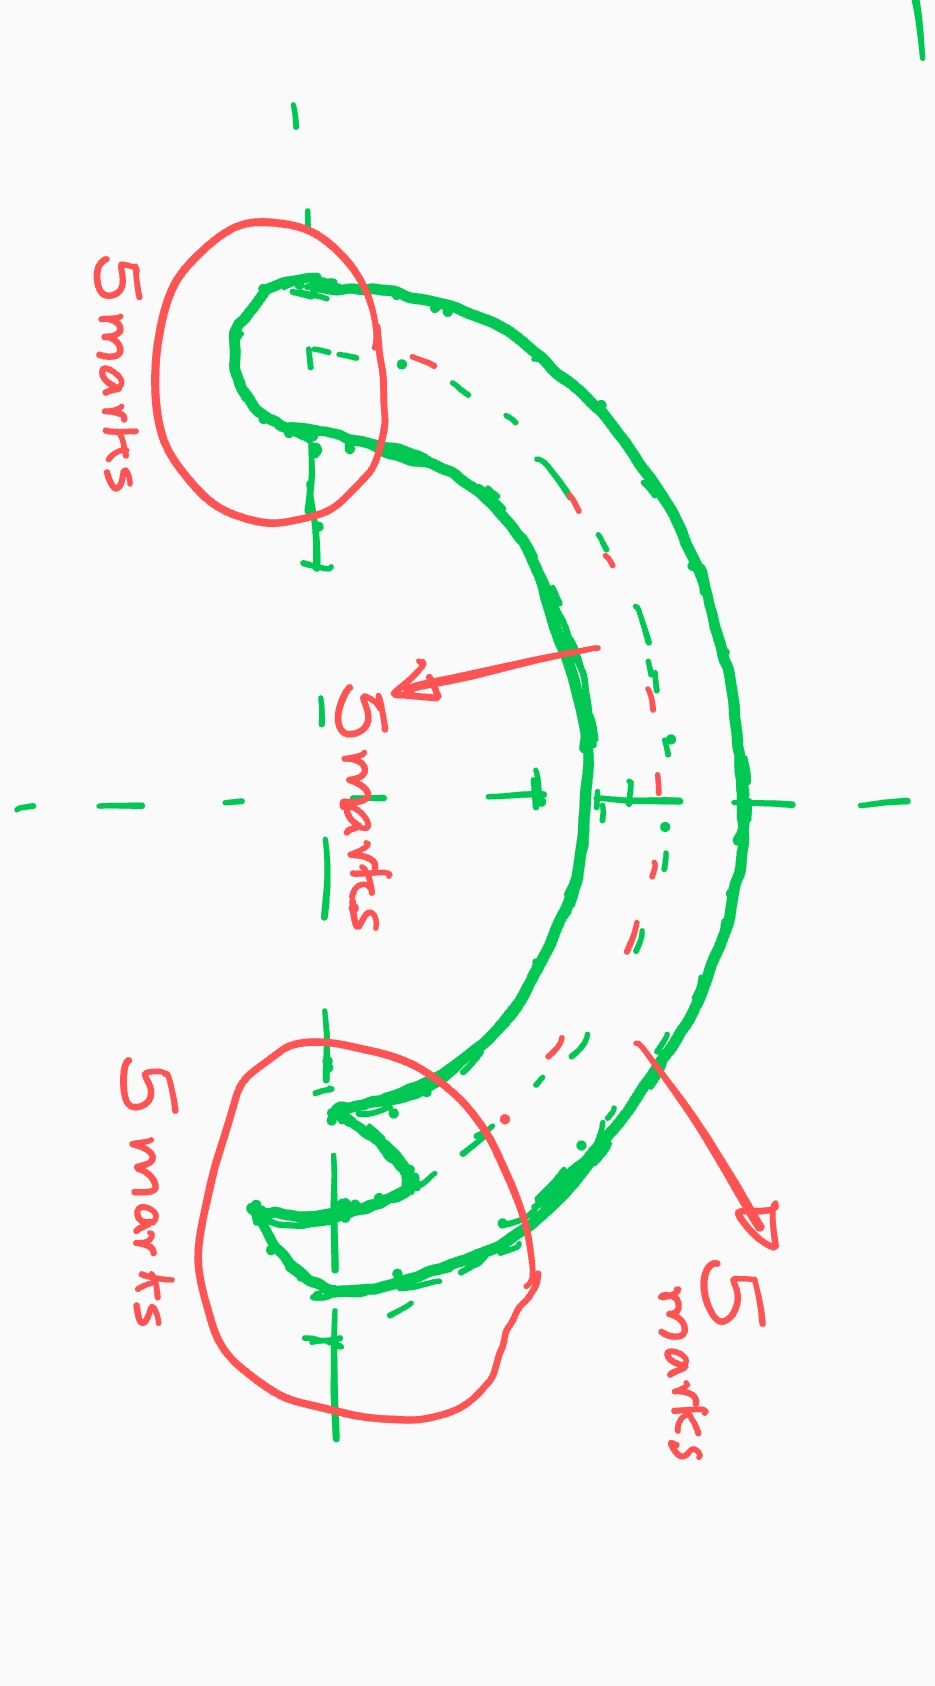 5 marks
5 marks
5 marks
5 marks